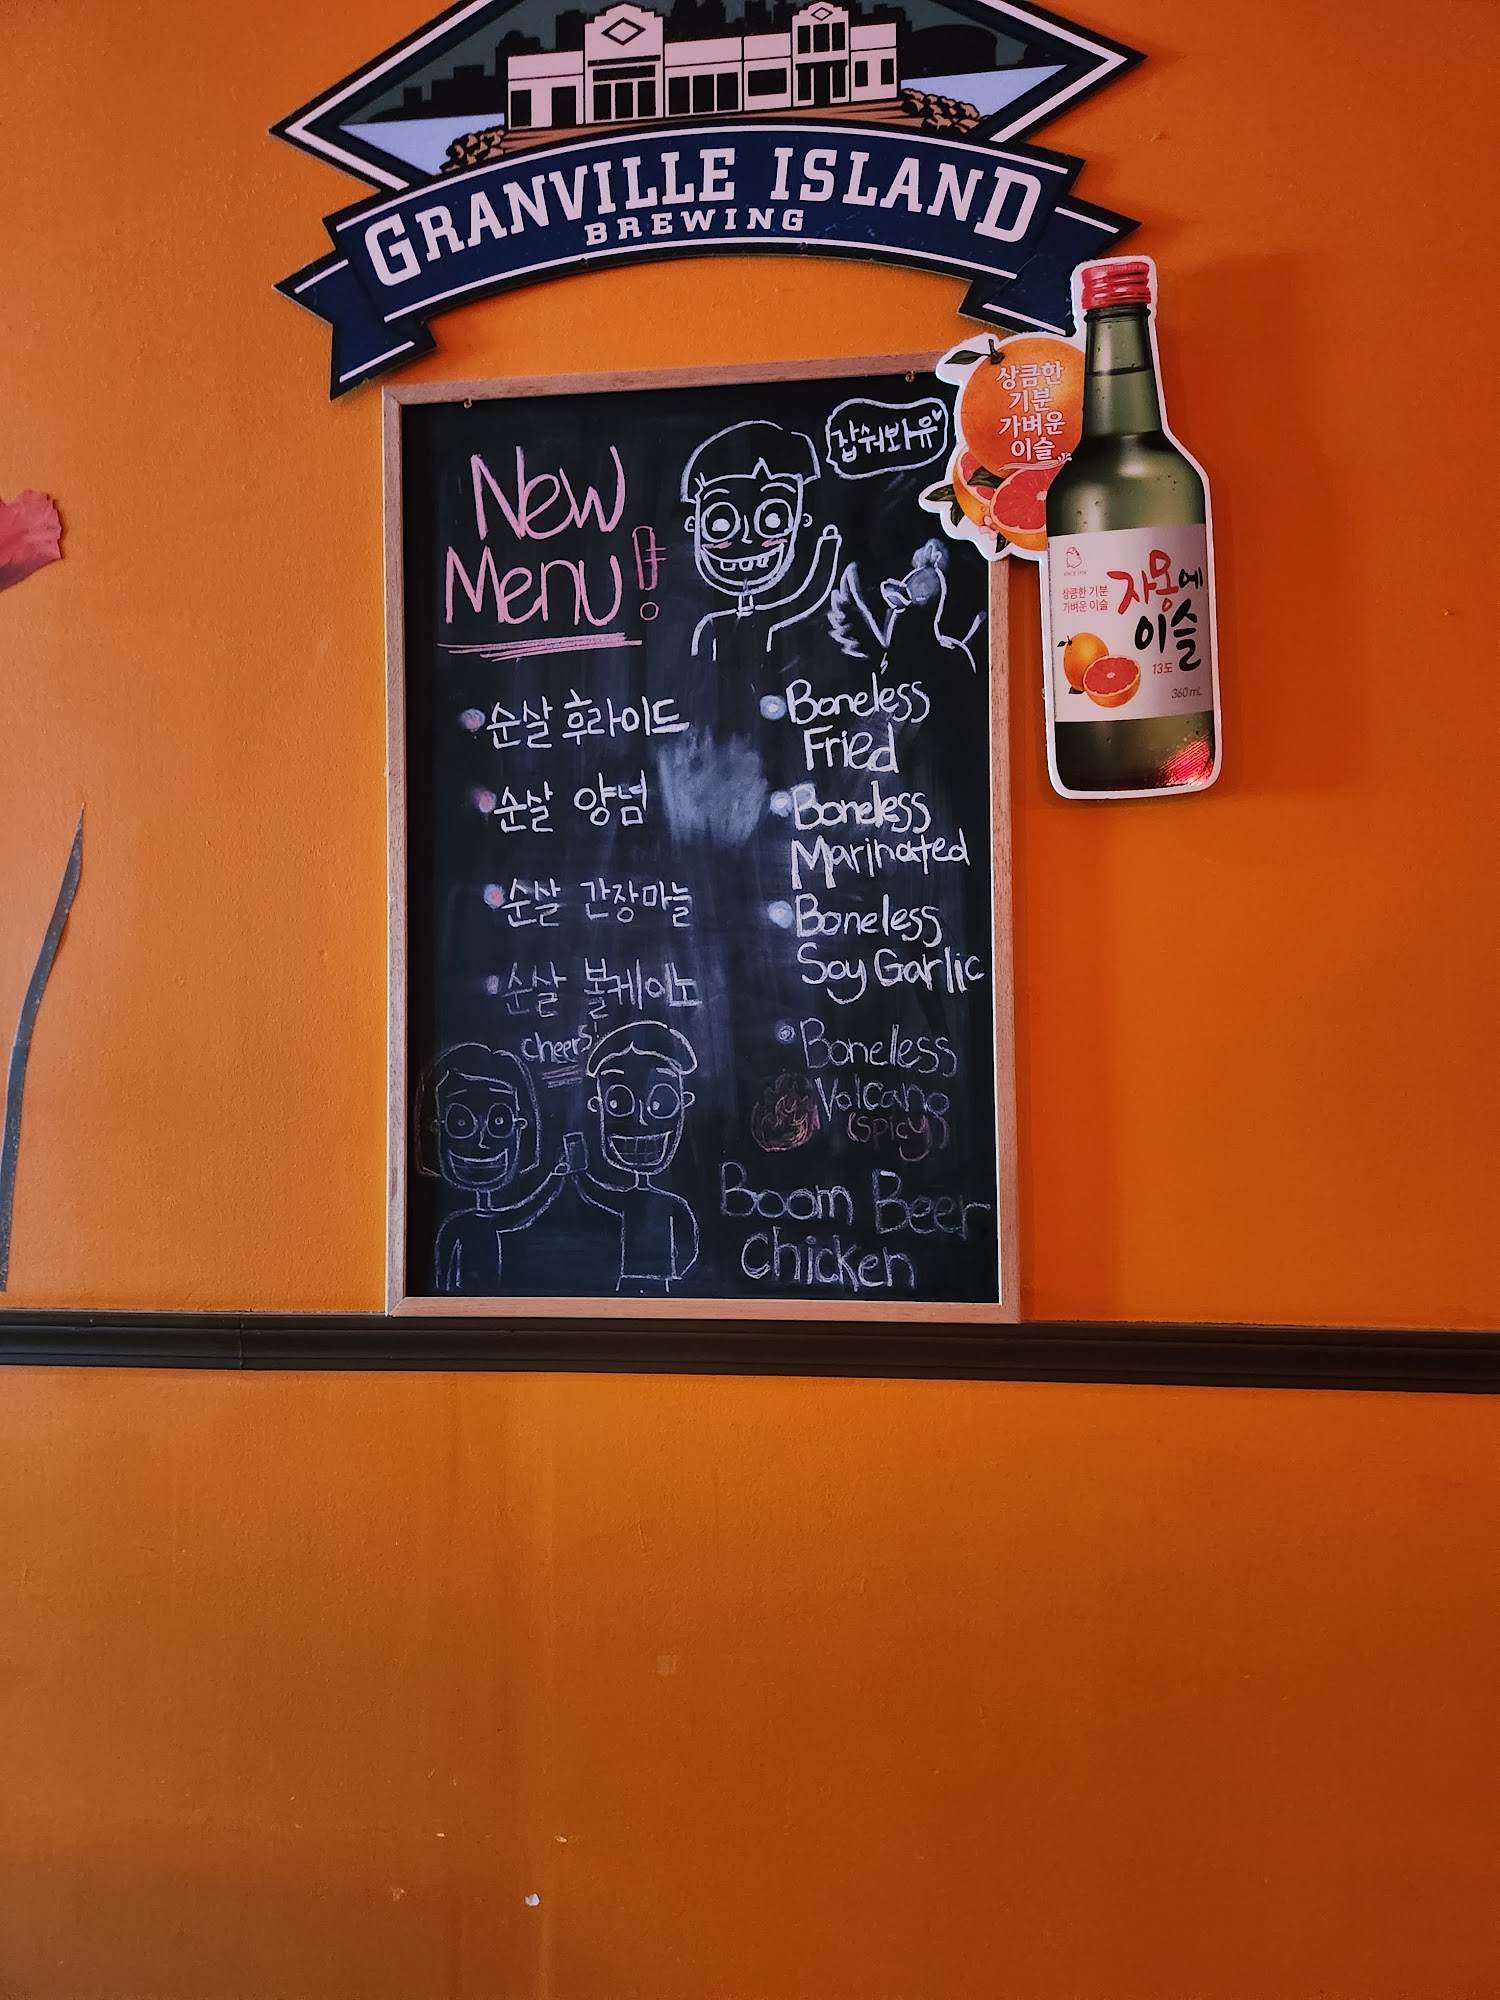 GRANVILLE ISLAND
BREWING
상큼한
기분
가벼운
이슬
자몽에
이슬
상큼한 기분
가벼운 이슬
13도
360 mL
잡숴봐유
New
Menu!
순살 후라이드
순살 양념
순살 간장마늘
순살 볼케이노
Boneless
Fried
Boneless
Marinated
Boneless
Soy Garlic
Boneless
Volcano
(spicy)
cheers!
Boom Beer
chicken